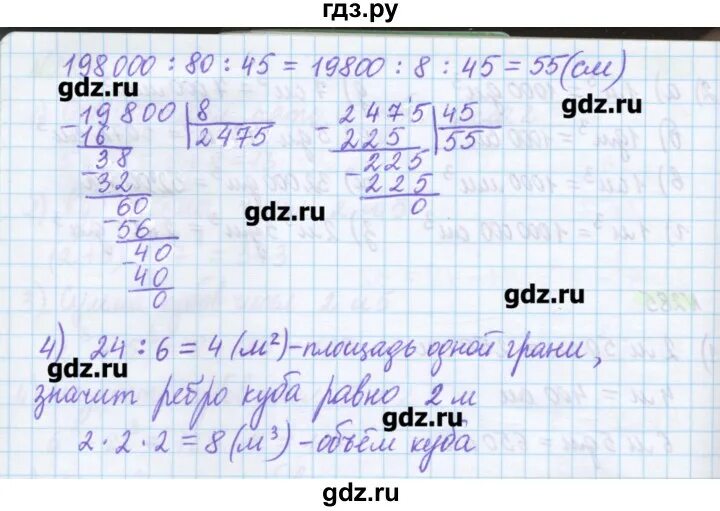 гдз.ру
198000 : 80 : 45 = 19800 : 8 : 45 = 55 (см)
gdz.ru
gdz.ru
19800 8
- 16 2475
38
- 32
60
- 56
40
- 40
0
2475 45
- 225 55
225
- 225
0
gdz.ru
gdz.ru
4) 24 : 6 = 4 (м²) - площадь одной грани,
gdz.ru
значит ребро куба равно 2 м
gdz.ru
2 · 2 · 2 = 8 (м³) - объём куба
gdz.ru